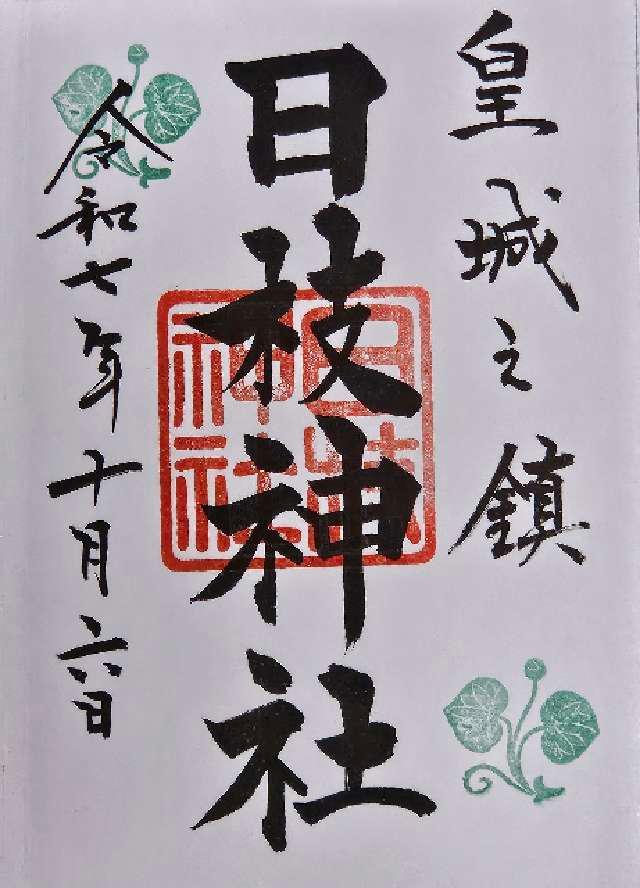 皇城之鎮
日枝神社
令和七年十月六日